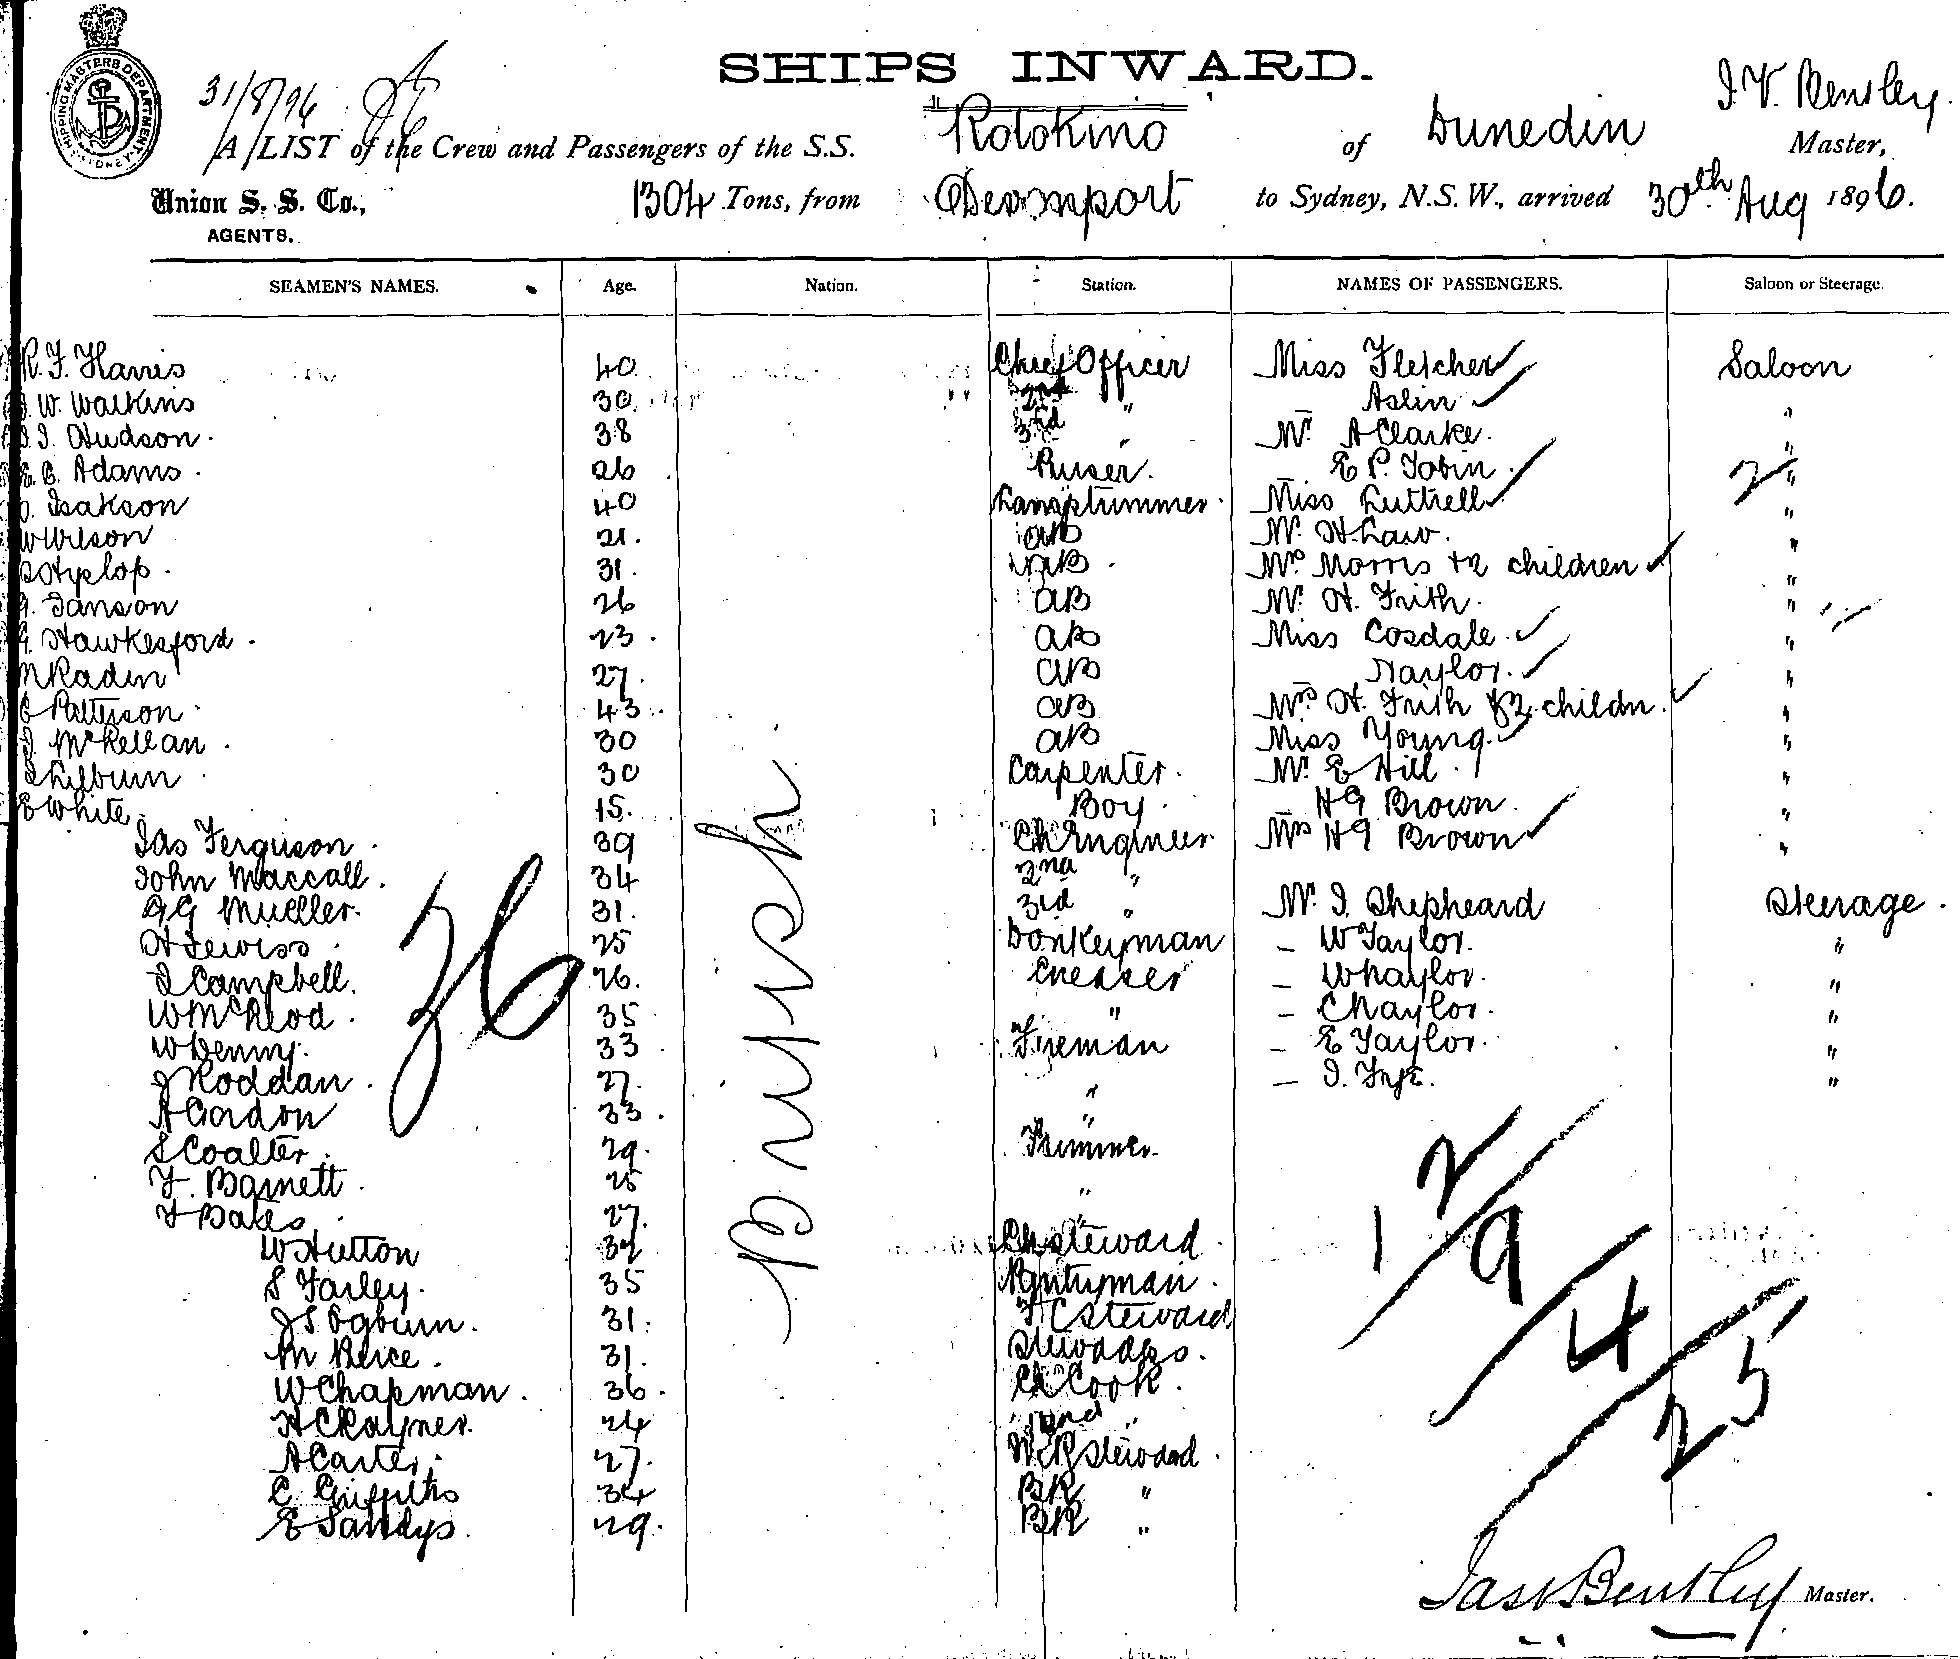 SHIPPING MASTERS DEPARTMENT SYDNEY
31/8/96
SHIPS INWARD.
J. V. Bentley
A LIST of the Crew and Passengers of the S.S. Rotokino of Dunedin Master,
Union S. S. Co., 1304 Tons, from Devonport to Sydney, N.S.W., arrived 30th Aug 1896.
AGENTS.
SEAMEN'S NAMES. Age. Nation. Station. NAMES OF PASSENGERS. Saloon or Steerage.
R. F. Harris 40 Chief Officer Miss Fletcher Saloon
W. Watkins 30 2nd " Aslin "
J. Hudson 38 3rd " Mr A Clarke "
E. C. Adams 26 Purser E P. Tobin 2 "
Isakson 40 Lamptrimmer Miss Luttrell "
W Wilson 21 AB Mr H Law "
Hyslop 31 AB Mrs Morris + 2 children "
Janson 26 AB Mr H. Frith "
Hawkesford 23 AB Miss Cosdale "
Raden 27 AB Naylor "
Patterson 43 AB Mrs H. Frith & 2 childn "
McKellan 30 AB Miss Young "
Lilburn 30 Carpenter Mr E Hill "
E White 15 Boy H G Brown "
Jas Ferguson 39 Ch Engineer Mrs H G Brown "
John Maccall 34 2nd "
A G Mueller 31 3rd " Mr J. Shepheard Steerage
H Lewiss 25 Donkeyman - W Taylor "
J Campbell 26 Greaser - W Naylor "
W McLeod 35 " - C Naylor "
W Denny 33 Fireman - E Taylor "
J Roddan 27 " - J. "
A Gordon 33 "
S Coalter 29 Trimmer
F. Barnett 25 "
F Bates 27 "
W Hutton 32 Ch Steward
S Farley 35 Pantryman
J S Ogburn 31 F C Steward
M Peirce 31 Stewardess
W Chapman 36 Ch Cook
H C Rayner 24 2nd "
A Carter 27 M R Steward
C Griffiths 34 BR "
E Sandys 29 BR "
36
British
12/9/4/25
Jas V Bentley Master.